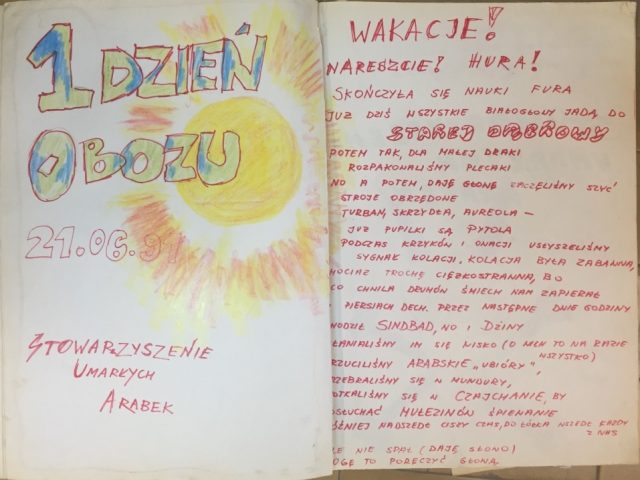 1 DZIEŃ
OBOZU
21.06.91
STOWARZYSZENIE
UMARŁYCH
ARABEK
WAKACJE!
NARESZCIE! HURA!
SKOŃCZYŁA SIĘ NAUKI FURA
JUŻ DZIŚ WSZYSTKIE BIAŁOGŁOWY JADĄ DO
STAREJ DĄBROWY
POTEM TAK, DLA MAŁEJ DRAKI
ROZPAKOWALIŚMY PLECAKI
NO A POTEM, DAJĘ GŁOWĘ ZACZĘLIŚMY SZYĆ
STROJE OBRZĘDOWE
TURBAN, SKRZYDŁA, AUREOLA –
JUŻ PUPILKI SĄ PYTOLA
PODCZAS KRZYKÓW I OWACJI USŁYSZELIŚMY
SYGNAŁ KOLACJI. KOLACJA BYŁA ZABAWNA,
HOCIAŻ TROCHĘ CIĘŻKOSTRAWNA, BO
CO CHWILA DRUHÓW ŚMIECH NAM ZAPIERAŁ
W PIERSIACH DECH. PRZEZ NASTĘPNE DWIE GODZINY
HODZIŁ SINDBAD, NO I DŻINY
KŁANIALIŚMY IM SIĘ NISKO (O NICH TO NA RAZIE
WSZYSTKO)
RZUCILIŚMY ARABSKIE „UBIÓRY",
RZEBRALIŚMY SIĘ W MUNDURY,
OTKALIŚMY SIĘ W CZAJCHANIE, BY
OSŁUCHAĆ MUEZINÓW ŚPIEWANIE
ÓŹNIEJ NADSZEDŁ CISZY CZAS, DO ŁÓŻKA WSZEDŁ KAŻDY
Z NAS
LE NIE SPAŁ (DAJĘ SŁOWO)
OGĘ TO PORĘCZYĆ GŁOWĄ